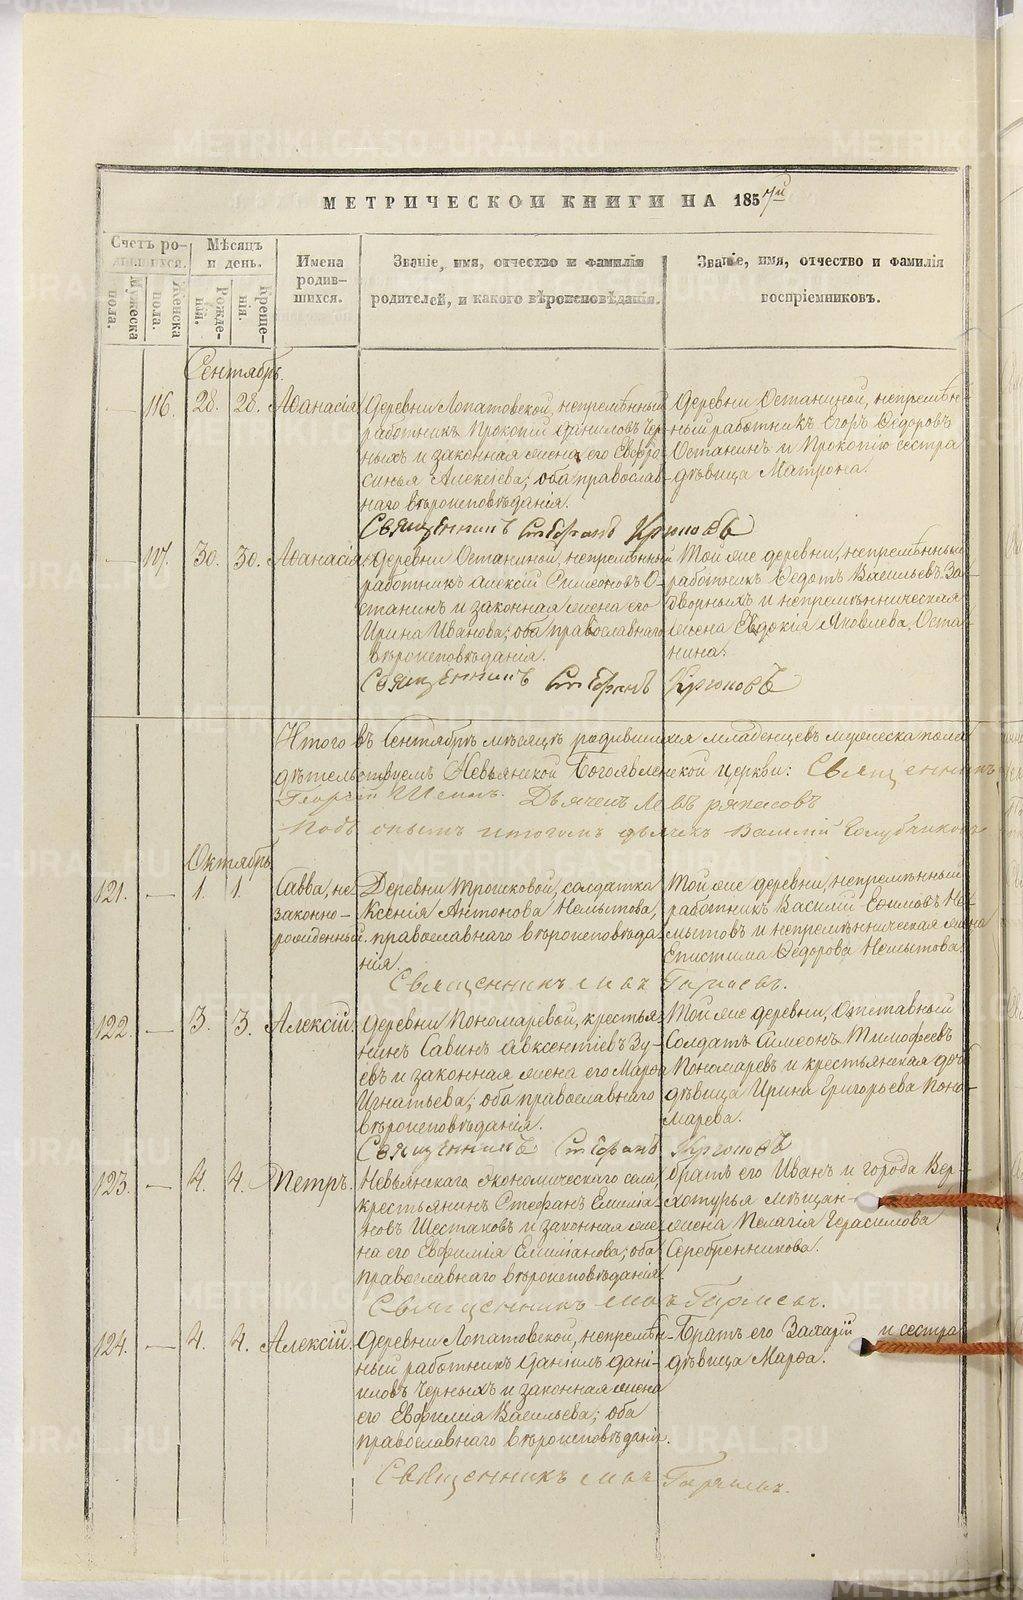 МЕТРИЧЕСКОЙ КНИГИ НА 1857й
Счетъ ро-
дившихся.
Мужеска
пола.
Женска
пола.
Мѣсяцъ
и день.
Рожде-
нія.
Креще-
нія.
Имена
родив-
шихся.
Званіе, имя, отчество и фамилія
родителей, и какого вѣроисповѣданія.
Званіе, имя, отчество и фамилія
воспріемниковъ.
Сентябрь.
— 116. 28. 28. Аѳанасія
Деревни Лопатовской, непремѣнный
работникъ Прокопій Даниловъ Чер-
ныхъ и законная жена его Евфро-
синья Алексѣева; оба православ-
наго вѣроисповѣданія.
Деревни Останиной, непремѣн-
ный работникъ Егоръ Ѳедоровъ
Останинъ и Прокопію сестра
дѣвица Матрона.
Священникъ Стефанъ Крюковъ
— 117. 30. 30. Аѳанасія
Деревни Останиной, непремѣнный
работникъ Алексій Симеоновъ О-
станинъ и законная жена его
Ирина Иванова; оба православнаго
вѣроисповѣданія.
Той же деревни, непремѣнный
работникъ Ѳедотъ Васильевъ За-
дворныхъ и непремѣнническая
жена Евдокія Яковлева Оста-
нина.
Священникъ Стефанъ Крюковъ
Итого въ Сентябрѣ мѣсяцѣ родившихся младенцевъ мужеска пола
дѣтельствуемъ Невьянской Богоявленской церкви: Священникъ
Георгій Дьячекъ Левъ
Подъ итогомъ дьячекъ Василій Голубчиковъ
Октябрь
121. — 1. 1. Савва, не-
законно-
рожденный
Деревни Трошковой, солдатка
Ксенія Антонова Немытова,
православнаго вѣроисповѣда-
нія.
Той же деревни, непремѣнный
работникъ Василій Ефимовъ Не-
мытовъ и непремѣнническая жена
Епистима Ѳедорова Немытова.
Священникъ
122. — 3. 3. Алексій.
Деревни Пономаревой, крестья-
нинъ Савинъ Авксентіевъ Зу-
евъ и законная жена его Марѳа
Игнатьева; оба православнаго
вѣроисповѣданія.
Той же деревни, Отставный
Солдатъ Симеонъ Тимофеевъ
Пономаревъ и крестьянская дочь
дѣвица Ирина Григорьева Поно-
марева.
Священникъ Стефанъ Крюковъ
123. — 4. 4. Петръ.
Невьянскаго Экономическаго села,
крестьянинъ Стефанъ Емилiа-
новъ Шестаковъ и законная же-
на его Евфимія Емиліанова; оба
православнаго вѣроисповѣданія.
братъ его Иванъ и города Вер-
хотурья мѣщан-
жена Пелагія Герасимова
Серебренникова.
Священникъ
124. — 4. 4. Алексій.
Деревни Лопатовской, непремѣн-
ный работникъ Даніилъ Дані-
иловъ Черныхъ и законная жена
его Евфимія Васильева; оба
православнаго вѣроисповѣданія.
Братъ его Захарій и сестра
дѣвица Марѳа.
Священникъ
METRIKI.GASO-URAL.RU